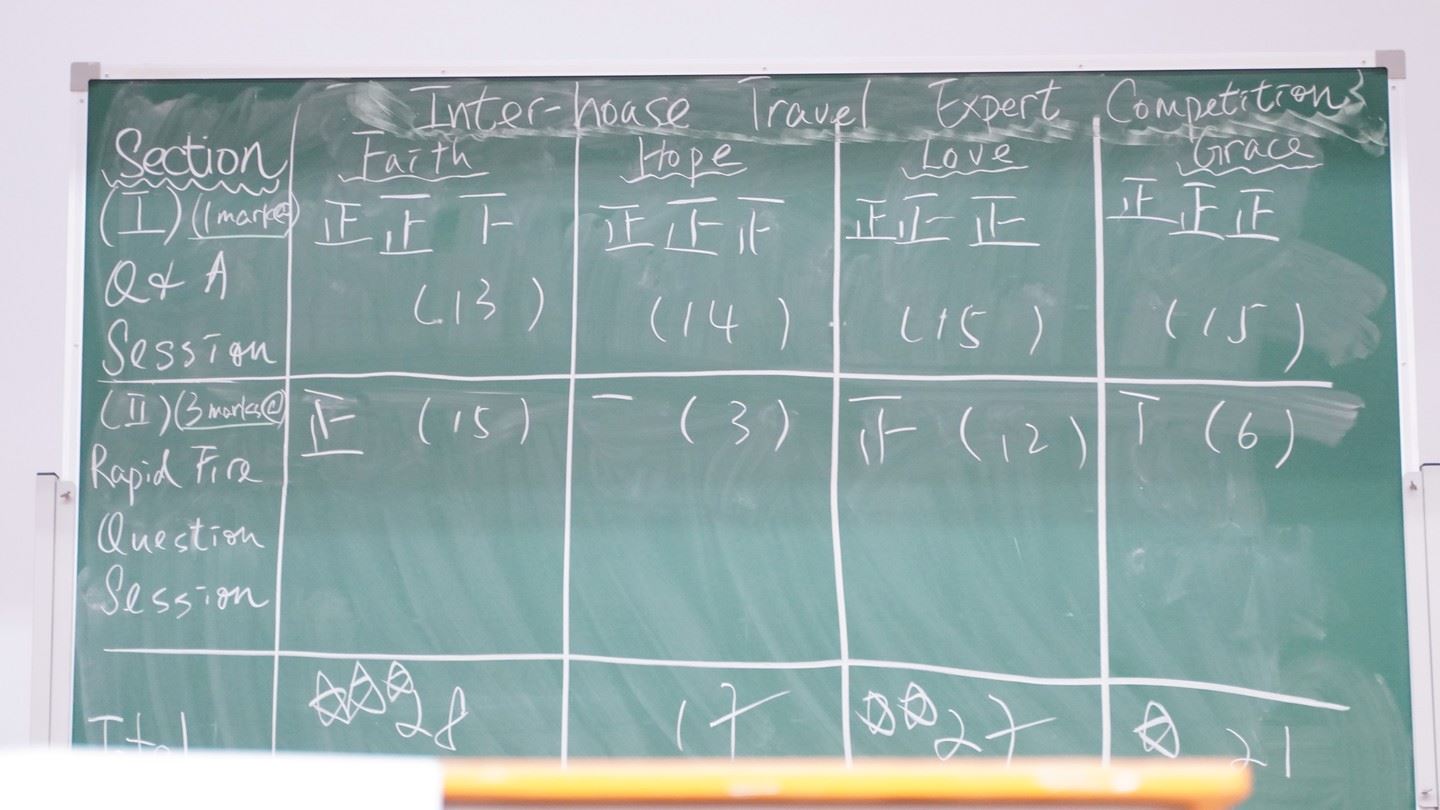 Inter-house Travel Expert Competition
Section Faith Hope Love Grace
(I) (1 mark@) 正 正 下 正 正 正 正 正 正 正 正 正
Q & A (13) (14) (15) (15)
Session
(II) (3 marks@) 正 (15) 一 (3) 正 (12) 丅 (6)
Rapid Fire
Question
Session
Total ☆☆☆ 28 17 ☆☆ 27 ☆ 21